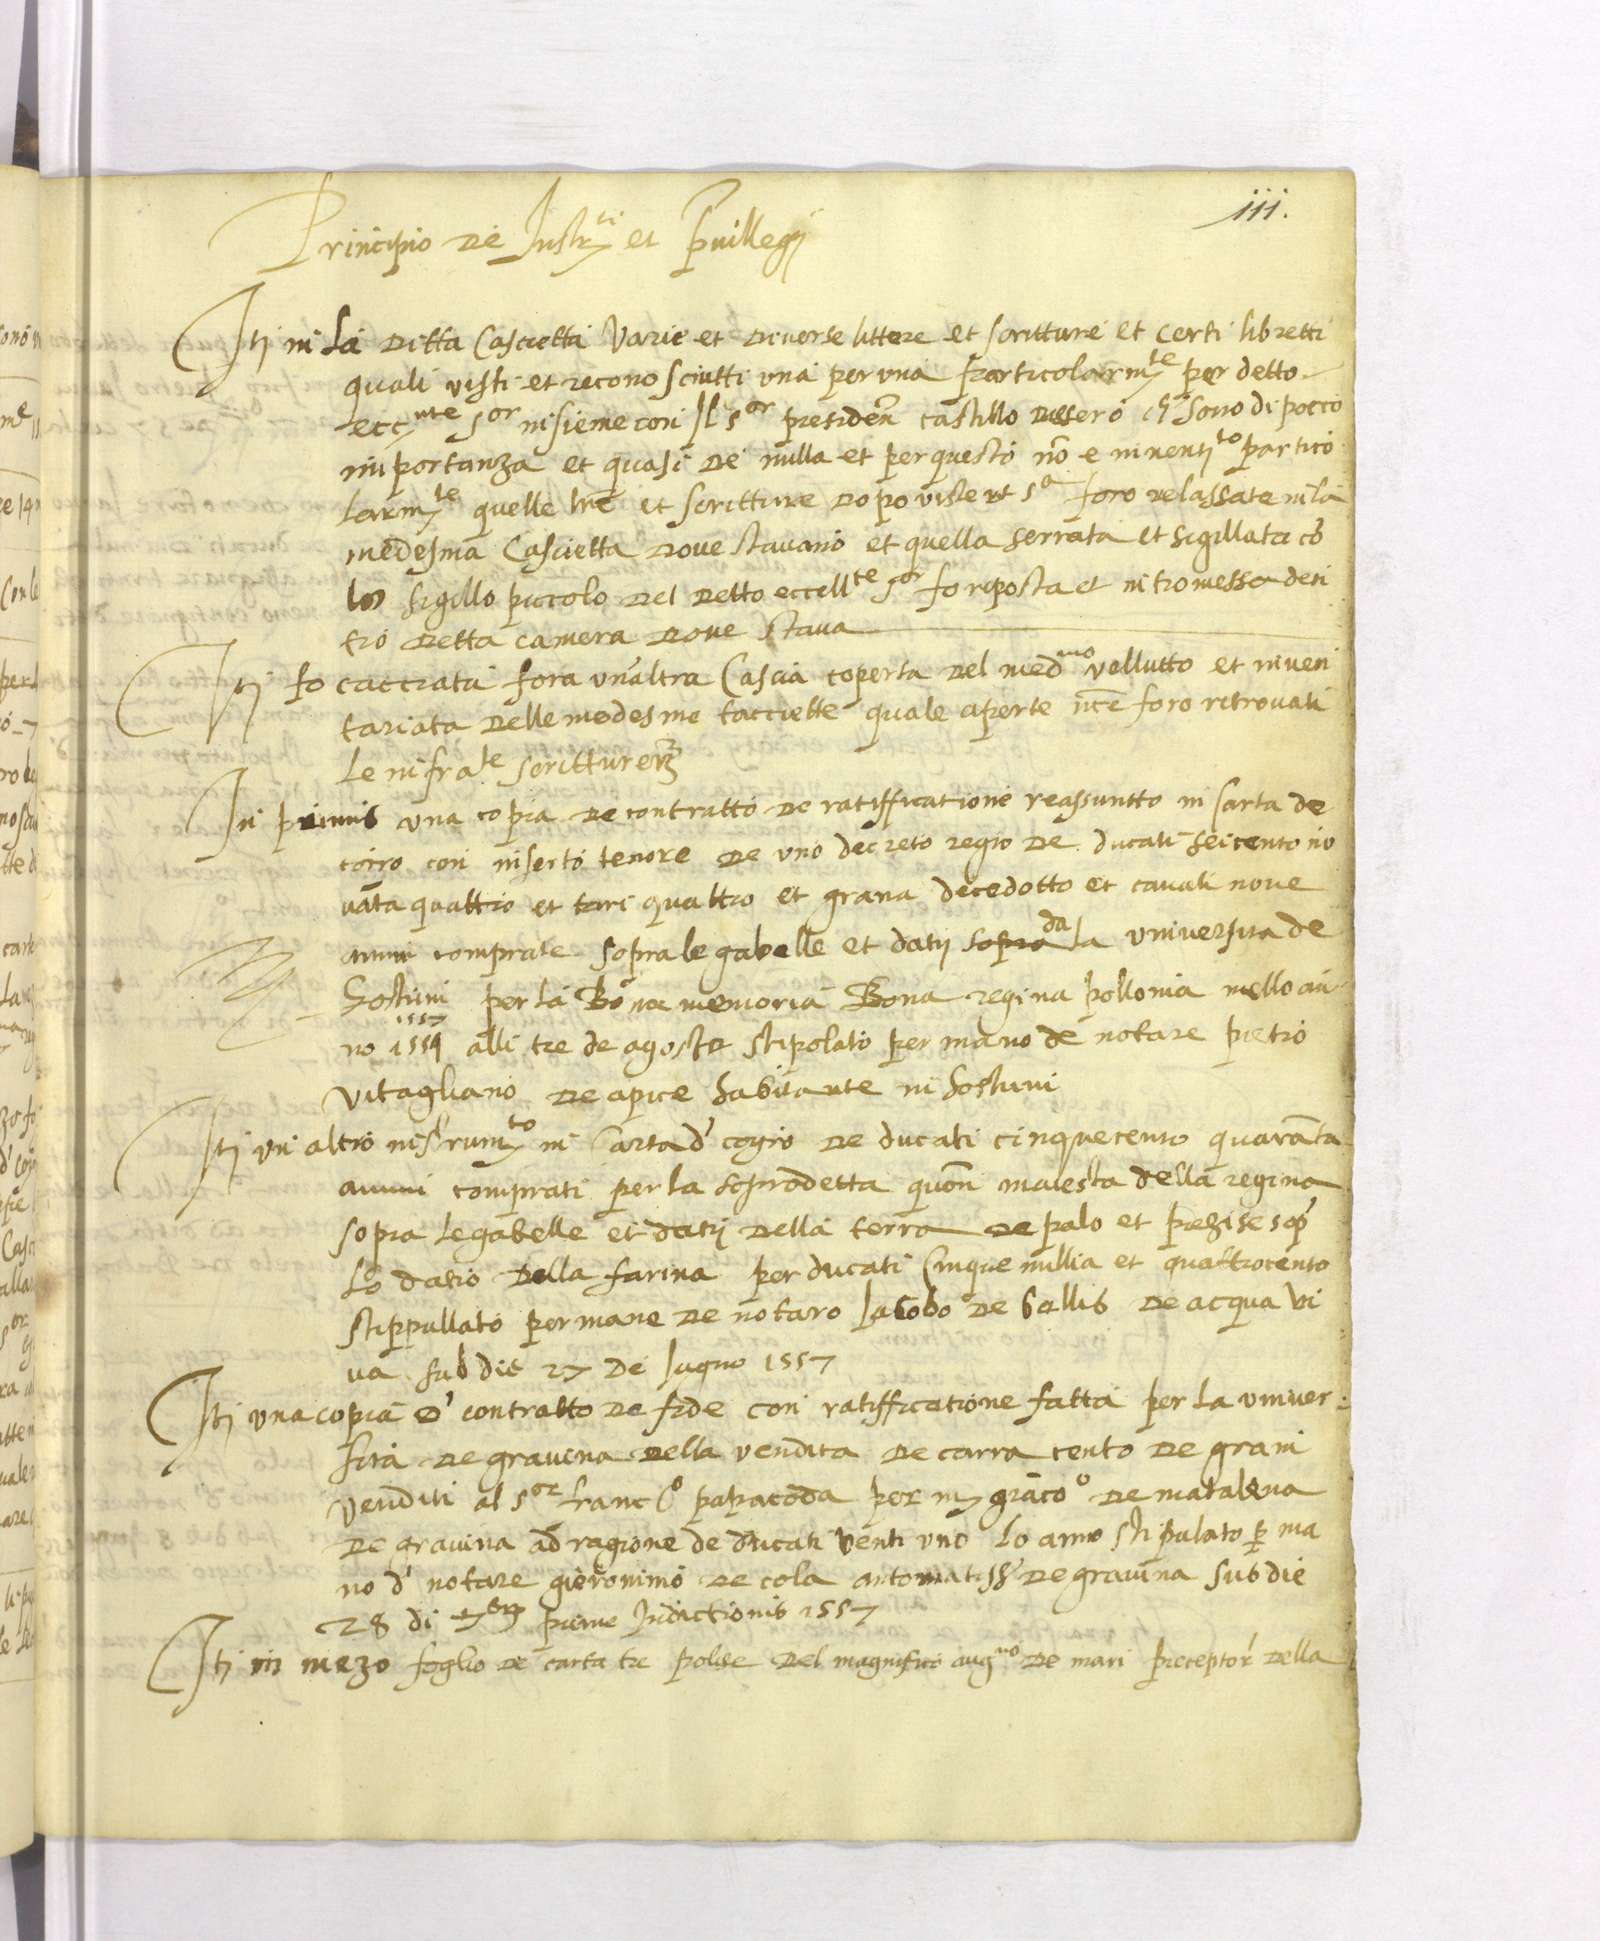 iii.
Principio de Instr.ti et privilegij
Itj in la ditta Cascietta varie et diverse littere et scritture et certi libretti
quali visti et reconosciutti una per una particolarm.te per detto
ecc.nte s.or insieme con Il s.or presiden castillo dissero ch sono di pocco
importanza et quasi de nulla et per questo nō e inventj.to partico
larm.te quelle lrē et scritture dopo viste ut s.a foro relassate in la
medesma Cascietta dove stavano et quella serrata et sigillata cō
lo sigillo piccolo del detto eccell.te s.or fo reposta et intromessa den
tro detta camera dove stava
Itj fo cacciata fora un'altra Cascia coperta del med.mo vellutto et inven
tariata delle medesme tacciette quale aperte nce foro ritrovati
le infra.te scritture
In primis una copia de contratto de ratifficatione reassuntto in carta de
coiro con inserto tenore de uno decreto regio de ducati seicento no
vāta quattro et tari quattro et grana decedotto et cavali nove
annui comprate sopra le gabelle et datij sopra da la universita de
Hostuni per la Bona memoria Bona regina pollonia nello an
no 1559 1557 alli tre de agosto stipolato per mano de notare pietro
vitagliano de apice habitante in hostuni
Itj un altro instrum.to in Carta d' coyro de ducati cinquecento quarāta
annui comprati per la sopradetta quon maiesta della regina
sopra le gabelle et datij della terra de palo et precise sop'
lo datio della farina per ducati Cinque millia et quattrocento
stippullato per mane de notaro Jacobo de Gallis de acqua vi
va sub die 27 de Iugno 1557
Itj una copia d' contratto de fide con ratifficatione fatta per la univer
sita de gravina della vendita de carra cento de grani
venditi al s.or franc.o papacoda per m grāco.o de matalena
de gravina ad ragione de ducati venti uno lo carro stipulato p ma
no d' notare gieronimo de cola de gravina sub die
28 di 7bre prime Indictionis 1557
Itj in mezo foglio de carta tre polise del magnifico aug.no de mari preceptor' della